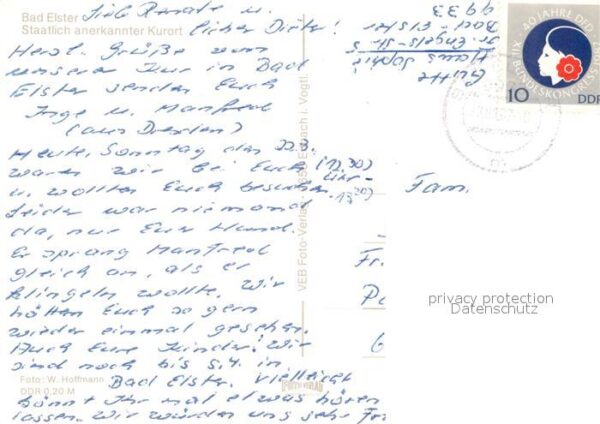 Bad Elster
Staatlich anerkannter Kurort
Liebe Renate u.
lieber Dieter!
Herzl. Grüße von
unserer Kur in Bad
Elster senden Euch
Inge u. Manfred
(aus Dresden)
Heute, Sonntag den 22.3.
waren wir bei Euch (11,30) Uhr -
u. wollten Euch besuchen. 13,20)
Leider war niemand
da, nur Euer Hund.
Er sprang Manfred
gleich an, als er
klingeln wollte. Wir
hätten Euch so gern
wieder einmal gesehen.
Auch Eure Kinder! Wir
sind noch bis 5.4. in
Bad Elster. Vielleicht
könnt Ihr mal etwas hören
lassen. Wir würden uns sehr
Foto: W. Hoffmann
DDR 0,20 M
VEB Foto-Verlag i. Vogtl.
9933
Bad-Elster
Engels-Str.
Haus Sophie
Fam.
40 JAHRE DFD
XII. BUNDESKONGRESS
10 DDR
privacy protection
Datenschutz